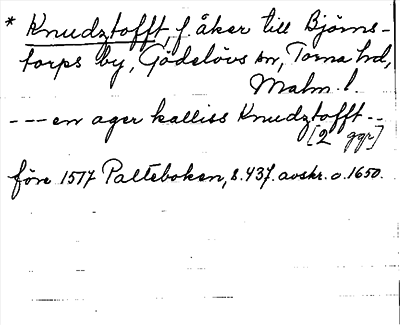 * Knudztofft, f. åker till Björns-
torps by, Gödelövs sn, Torna hd,
Malm. l.
--- en ager kalliss Knudztofft --
[2 ggr]
före 1517 Palteboken, s. 437. avskr. o. 1650.